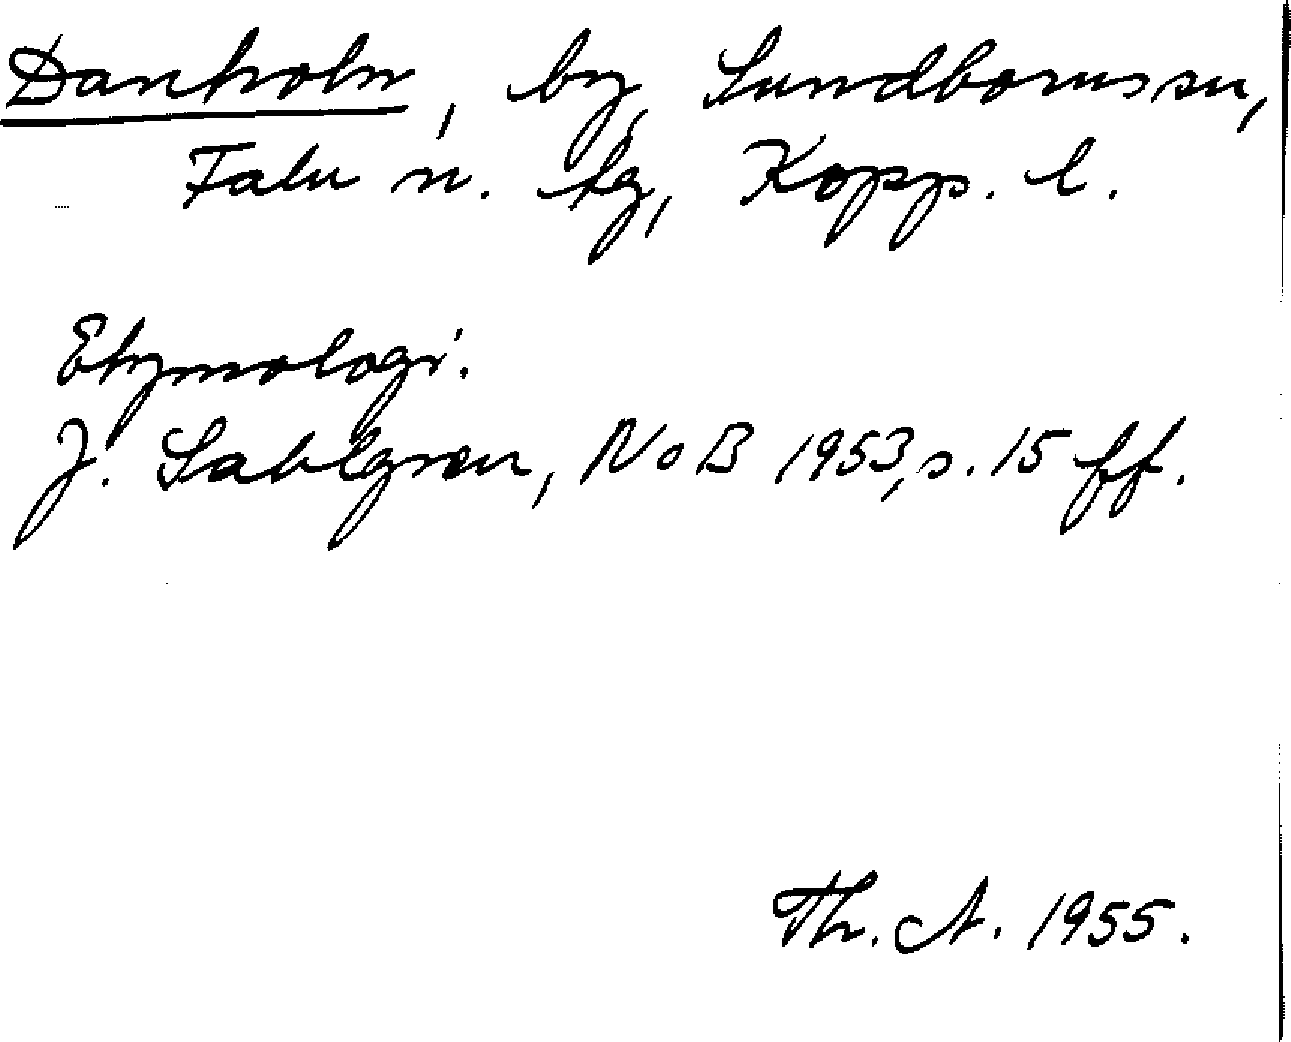 Danholn, by, Sundborns sn,
Falu n. tg, Kopp. l.
Etymologi.
J. Sahlgren, NoB 1953, s. 15 ff.
Th. A. 1955.